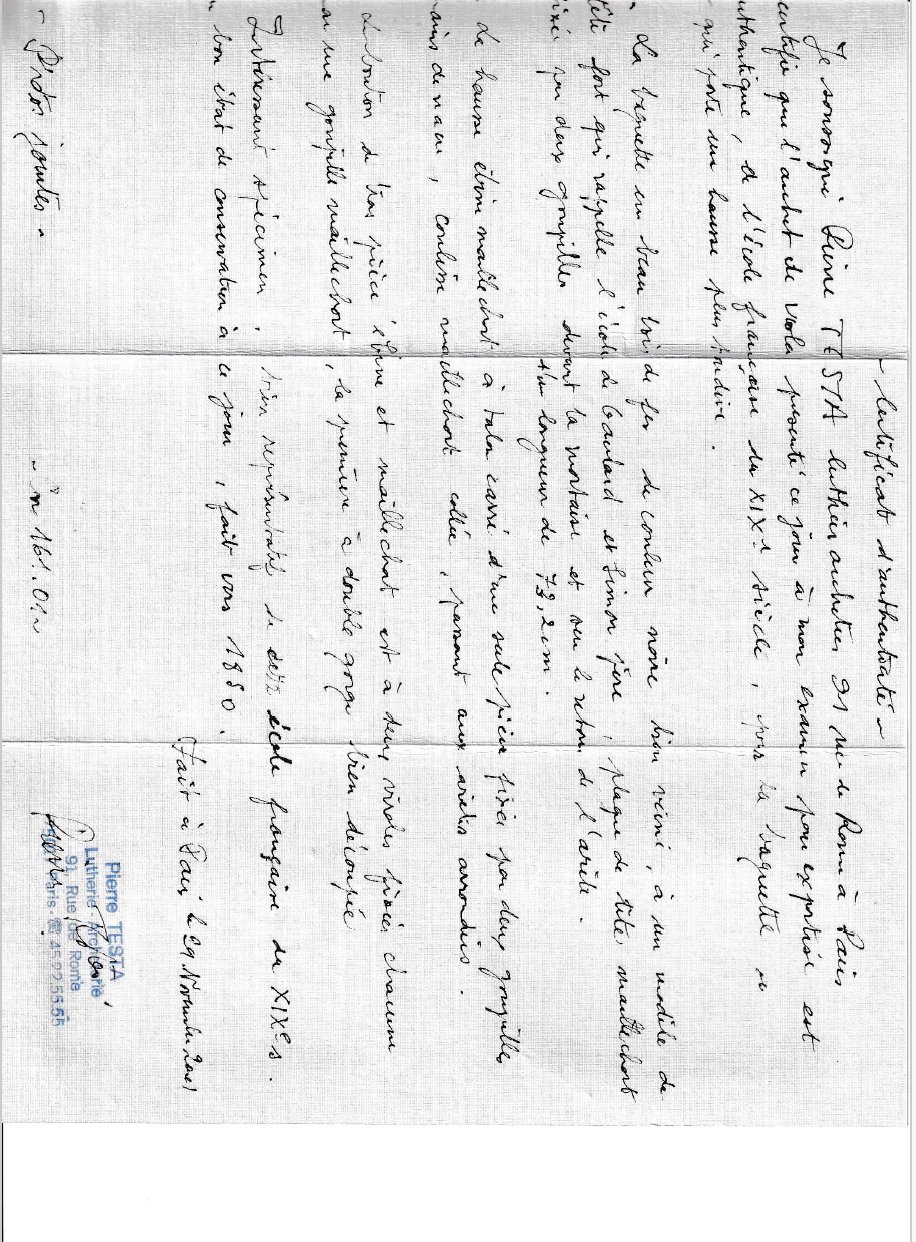 - Certificat d'authenticité -
Je soussigné Pierre TESTA luthier archetier 91 rue de Rome à Paris
certifie que l'archet de viola présenté ce jour à mon examen pour expertise est
authentique, de l'école française du XIXe siècle, pour la baguette
qui porte une hausse plus tardive.
La baguette en beau bois de fer de couleur noire bien veiné, à un modèle de
tête fort qui rappelle l'école de et Simon père, plaque de tête maillechort
fixée par deux goupilles devant la mortaise et sur le retour de l'arête.
d'une longueur de 73,2 cm.
La hausse ébène maillechort à talon carré d'une seule pièce fixée par deux goupilles
grains de nacre, coulisse maillechort collée, passant aux arêtes arrondies.
Le bouton de trois pièces ébène et maillechort est à deux viroles fixées chacune
par une goupille maillechort, la première à double gorge bien découpée
Intéressant spécimen, bien représentatif de cette école française du XIXe s.
bon état de conservation à ce jour, fait vers 1850.
Fait à Paris le 29 Novembre 2001
- Photos jointes -
- n° 161.01 -
Pierre TESTA
Lutherie Archèterie
91, Rue de Rome
Paris - ☎ 45.22.55.55